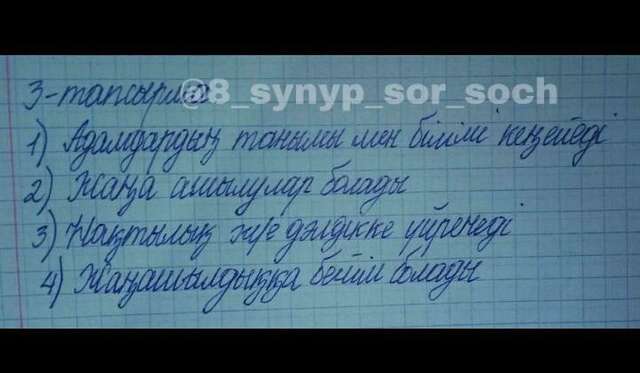 3-тапсырма
@8_synyp_sor_soch
1) Адамдардың танымы мен білімі кеңейеді
2) Жаңа ашылулар болады
3) Нақтылық және дәлдікке үйренеді
4) Жаңашылдыққа бейім болады